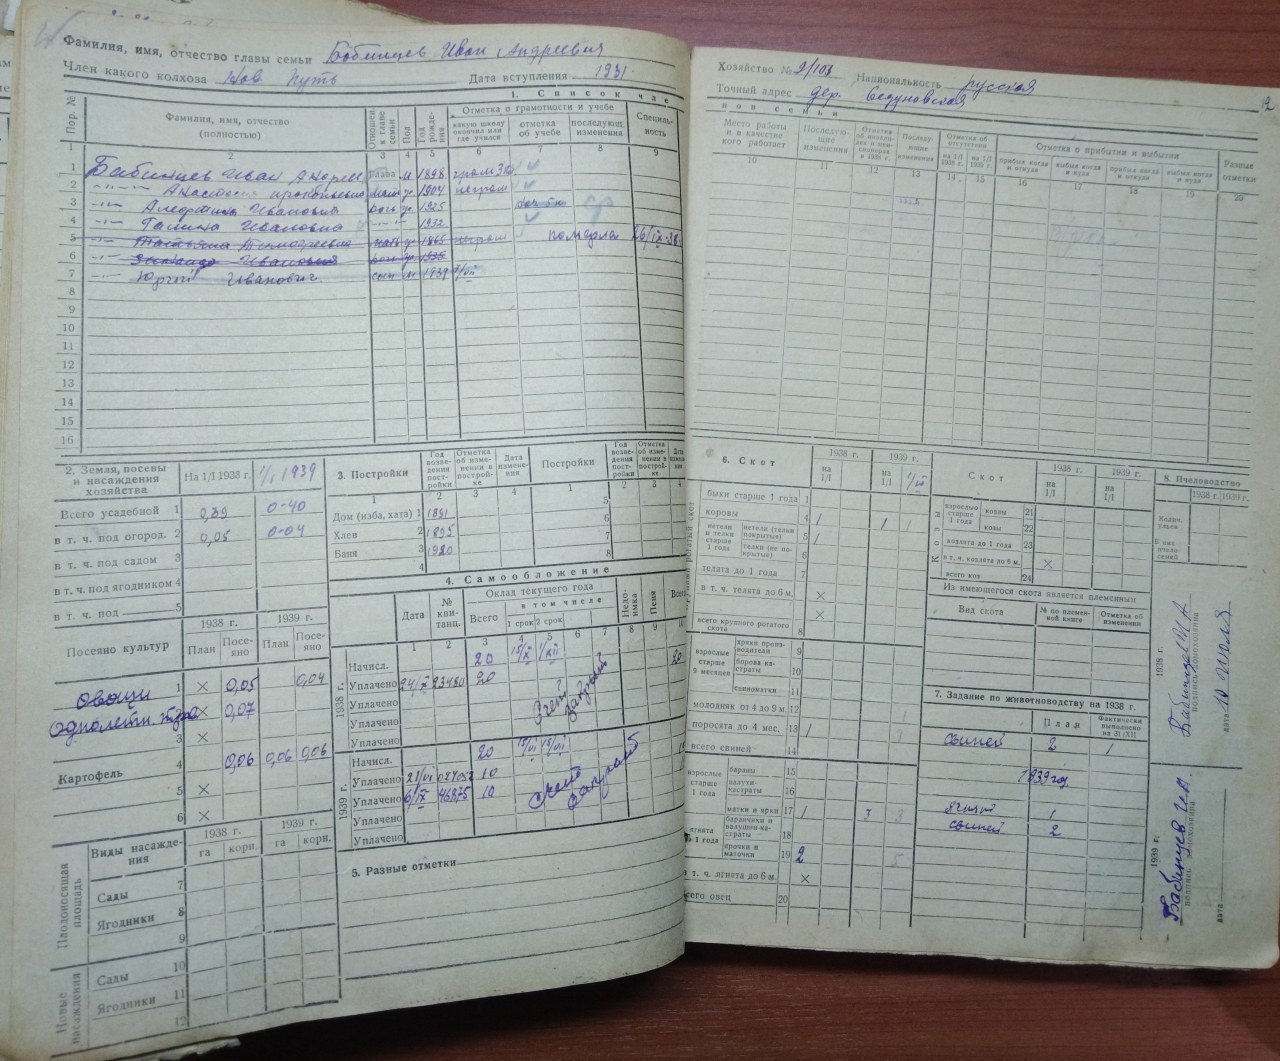 Фамилия, имя, отчество главы семьи Бабинцев Иван Андреевич
Член какого колхоза Нов Путь Дата вступления 1931.
1. Список чле
Пор. №
Фамилия, имя, отчество (полностью)
Отношен. к главе семьи
Пол
Год рождения
Отметка о грамотности и учебе
какую школу окончил или где учился
отметка об учебе
последующ. изменения
Специальность
1 2 3 4 5 6 7 8 9
1 Бабинцев Иван Андрее глава м 1898
2 -"- Анастасия 1904 неграм
3 -"- Ивановна дочь 1925
4 Галина Ивановна -"- 1932
5 -"- Татьяна Тимофеевна мать 1865 неграм померла
6 -"- Ивановна дочь
7 -"- Юрий Иванович сын м 1939
8
9
10
11
12
13
14
15
16
2. Земля, посевы и насаждения хозяйства
На 1/I 1938 г. 1/I 1939
Всего усадебной 1 0,39 0-40
в т. ч. под огород. 2 0,05 0-04
в т. ч. под садом 3
в т. ч. под ягодником 4
в т. ч. под 5
Посеяно культур
1938 г. 1939 г.
План Посеяно План Посеяно
овощи 1 × 0,05 0,04
однолетн. × 0,07
3 ×
Картофель 4 0,06 0,06 0,06
5 ×
6 ×
Плодоносящая площадь
Виды насаждения
1938 г. 1939 г.
га корн. га корн.
7
Сады
Ягодники 8
9
Новые насаждения
Сады 10
Ягодники 11
12
3. Постройки
Год возведения постройки
Отметка об изменении в постройке
Дата изменения
Постройки
Год возведения постройки
Отметка об изменении в постройке
1 2 3 4 1 2 3 4
Дом (изба, хата) 1 1891 5
Хлев 2 1895 6
Баня 3 1920 7
4 8
4. Самообложение
Дата
№ квитанц.
Оклад текущего года
Всего
в том числе
1 срок 2 срок
Недоимка
Пеня
Всего
1 2 3 4 5 6 7 8 9
1938 г.
Начисл. 20 15/IX 1/XII 20
Уплачено 24/X 23480 20
Уплачено
Уплачено
Уплачено
Счет закрыт
1939 г.
Начисл. 20
Уплачено 21/VI 10
Уплачено 6/IX 46375 10
Уплачено
Уплачено
Счет закрыт
5. Разные отметки
Хозяйство № 2/108 Национальность русская
Точный адрес дер. Седуновская
нов семьи
Место работы и в качестве кого работает
Последующие изменения
Последующ. изменения
Отметка об отсутствии
на 1/I 1938 г. на 1/I 1939 г.
Отметка о прибытии и выбытии
прибыл когда и откуда
выбыл когда и куда
прибыл когда и откуда
выбыл когда и куда
Разные отметки
10 11 12 13 14 15 16 17 18 19 20
6. Скот
1938 г. 1939 г.
на 1/I на 1/I
быки старше 1 года 1
коровы 4 1 1 1
нетели и телки старше 1 года
нетели (телки покрытые) 5 1
телки (не покрытые) 6
телята до 1 года 7
в т. ч. телята до 6 м. ×
всего крупного рогатого скота 8 ×
взрослые старше 9 месяцев
хряки производители 9
борова кастраты 10
свиноматки 11
молодняк от 4 до 9 м. 12
поросята до 4 мес. 13 1
всего свиней 14
взрослые старше 1 года
бараны 15
валухи-кастраты 16
матки и ярки 17 1 3
ягнята до 1 года
баранчики и валушки-кастраты 18
ярочки и маточки 19 2
в т. ч. ягнята до 6 м. ×
всего овец 20
Скот
1938 г. 1939 г.
на 1/I на 1/I
Козы
взрослые старше 1 года
козлы 21
козы 22
козлята до 1 года 23
в т. ч. козлята до 6 м. ×
всего коз 24
Из имеющегося скота является племенным
Вид скота
№ по племенной книге
Отметка об изменении
7. Задание по животноводству на 1938 г.
План
Фактически выполнено на 31/XII
свиней 2 1
1939 год
ягнят 1
свиней 2
8. Пчеловодство
1938 г. 1939 г.
Колич. ульев
1938 г.
Бабинцев И.А.
подпись домохозяина
дата 10 июля
1939 г.
Бабинцев И.А.
подпись домохозяина
дата